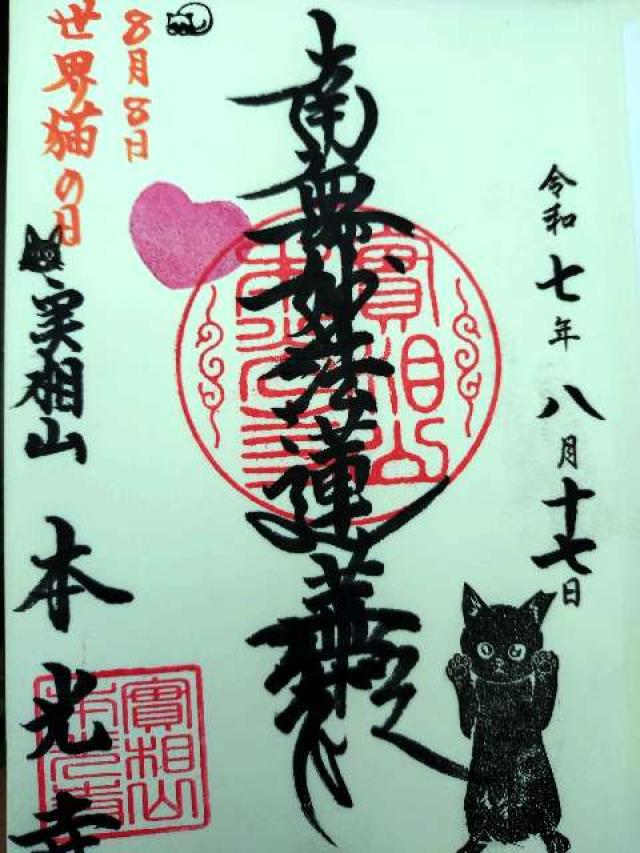 令和七年八月十七日
南無妙法蓮華経
實相山
本光寺
8月8日
世界猫の日
実相山
本光寺
實相山
本光寺